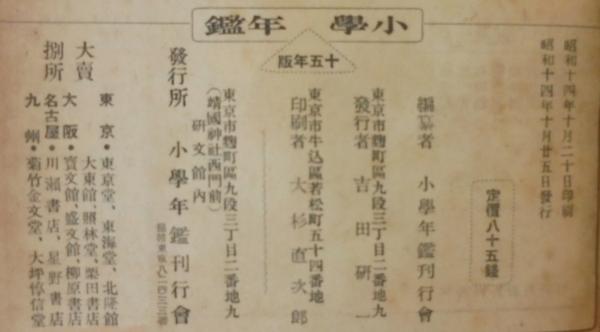 小學年鑑
十五年版
昭和十四年十月二十日印刷
昭和十四年十月廿五日發行
定價八十五錢
編纂者 小學年鑑刊行會
東京市麴町區九段三丁目二番地九
發行者 吉田研一
東京市牛込區若松町五十四番地
印刷者 大杉直次郎
東京市麴町區九段三丁目二番地九
(靖國神社西門前)
研文館內
發行所 小學年鑑刊行會
大賣捌所
東京・東京堂、東海堂、北隆館
大東館、照林堂、栗田書店
大阪・寶文館、盛文館、柳原書店
名古屋・川瀨書店、星野書店
九州・菊竹金文堂、大坪惇信堂